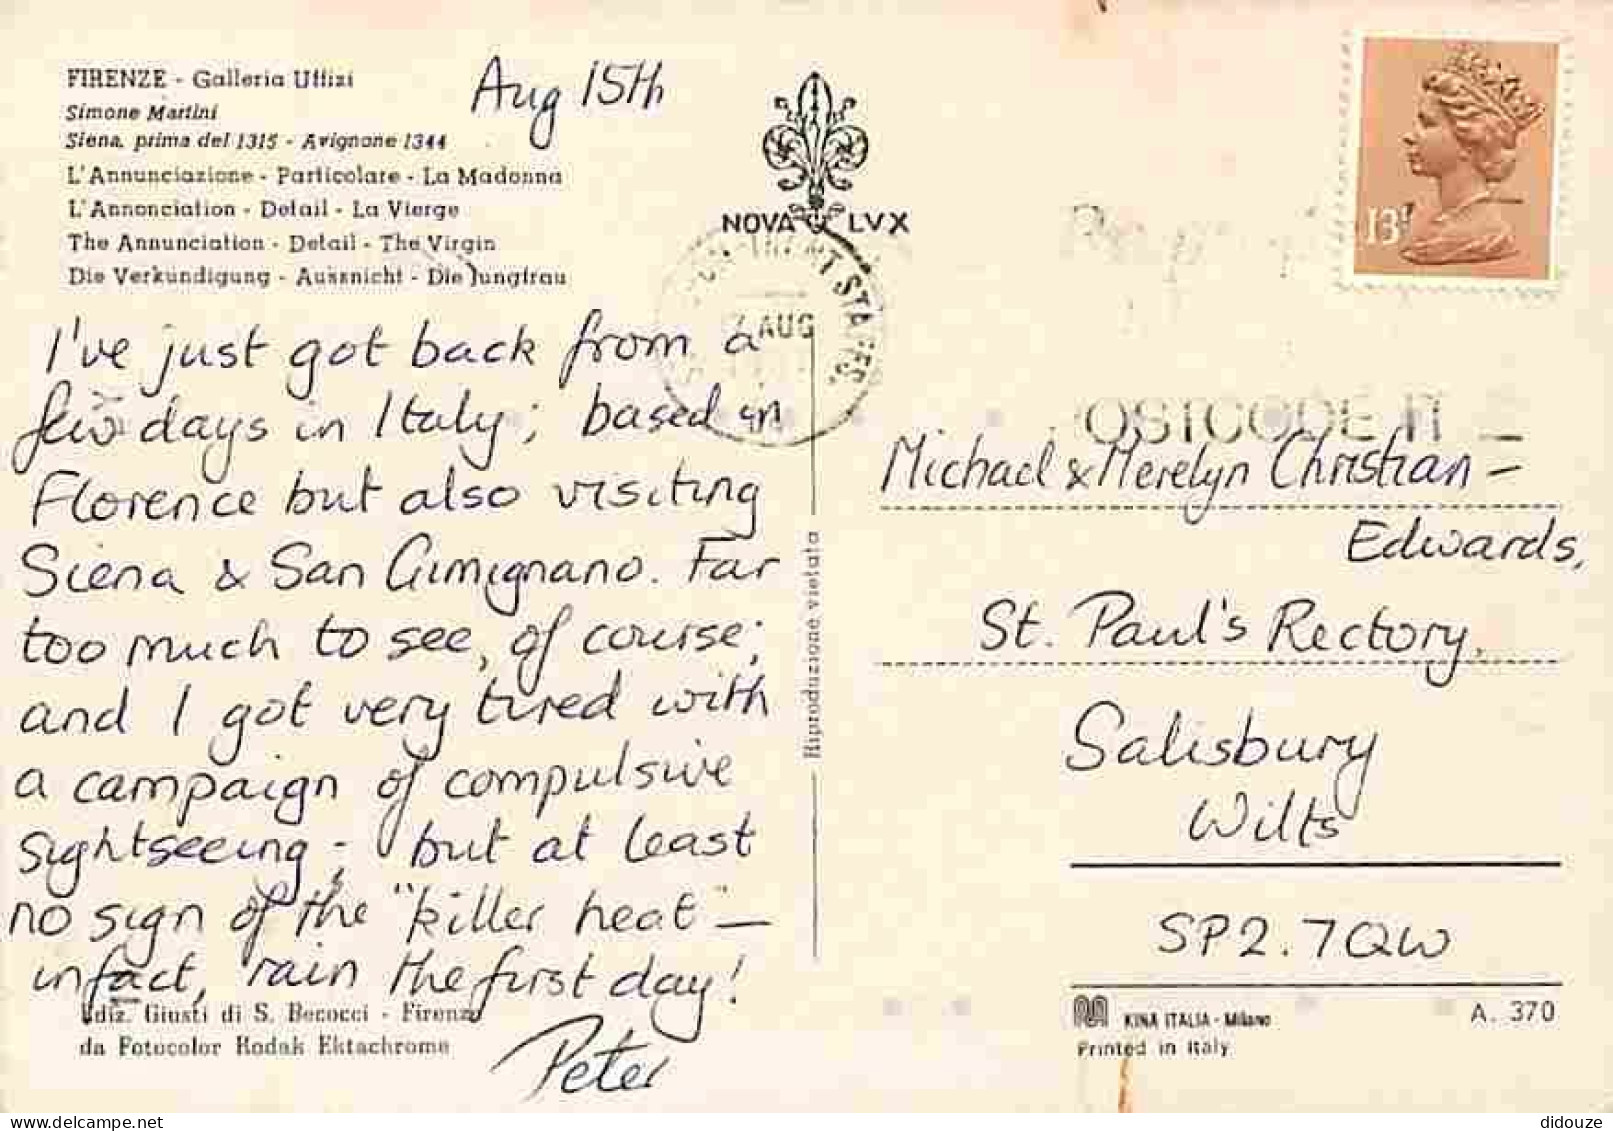 FIRENZE - Galleria Uffizi
Simone Martini
Siena, prima del 1315 - Avignone 1344
L'Annunciazione - Particolare - La Madonna
L'Annonciation - Detail - La Vierge
The Annunciation - Detail - The Virgin
Die Verkündigung - Aussnicht - Die Jungfrau
Aug 15th
NOVA LVX
13P
STAFFS.
AUG
I've just got back from a
few days in Italy; based in
Florence but also visiting
Siena & San Gimignano. Far
too much to see, of course;
and I got very tired with
a campaign of compulsive
sightseeing; but at least
no sign of the "killer heat" —
in fact, rain the first day!
Peter
Ediz. Giusti di S. Becocci - Firenze
da Fotocolor Kodak Ektachrome
Riproduzione vietata
POSTCODE IT
Michael & Merelyn Christian -
Edwards,
St. Paul's Rectory,
Salisbury
Wilts
SP2. 7QW
KINA ITALIA - Milano
Printed in Italy
A. 370
didouze